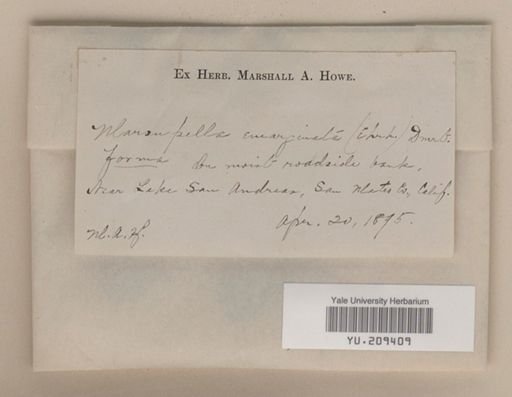 Ex Herb. Marshall A. Howe.
Marsupella emarginata (Ehrh.) Dumort.
forma On moist roadside bank,
Near Lake San Andreas, San Mateo Co., Calif.
Apr. 20, 1895.
M.A.H.
Yale University Herbarium
YU.209409